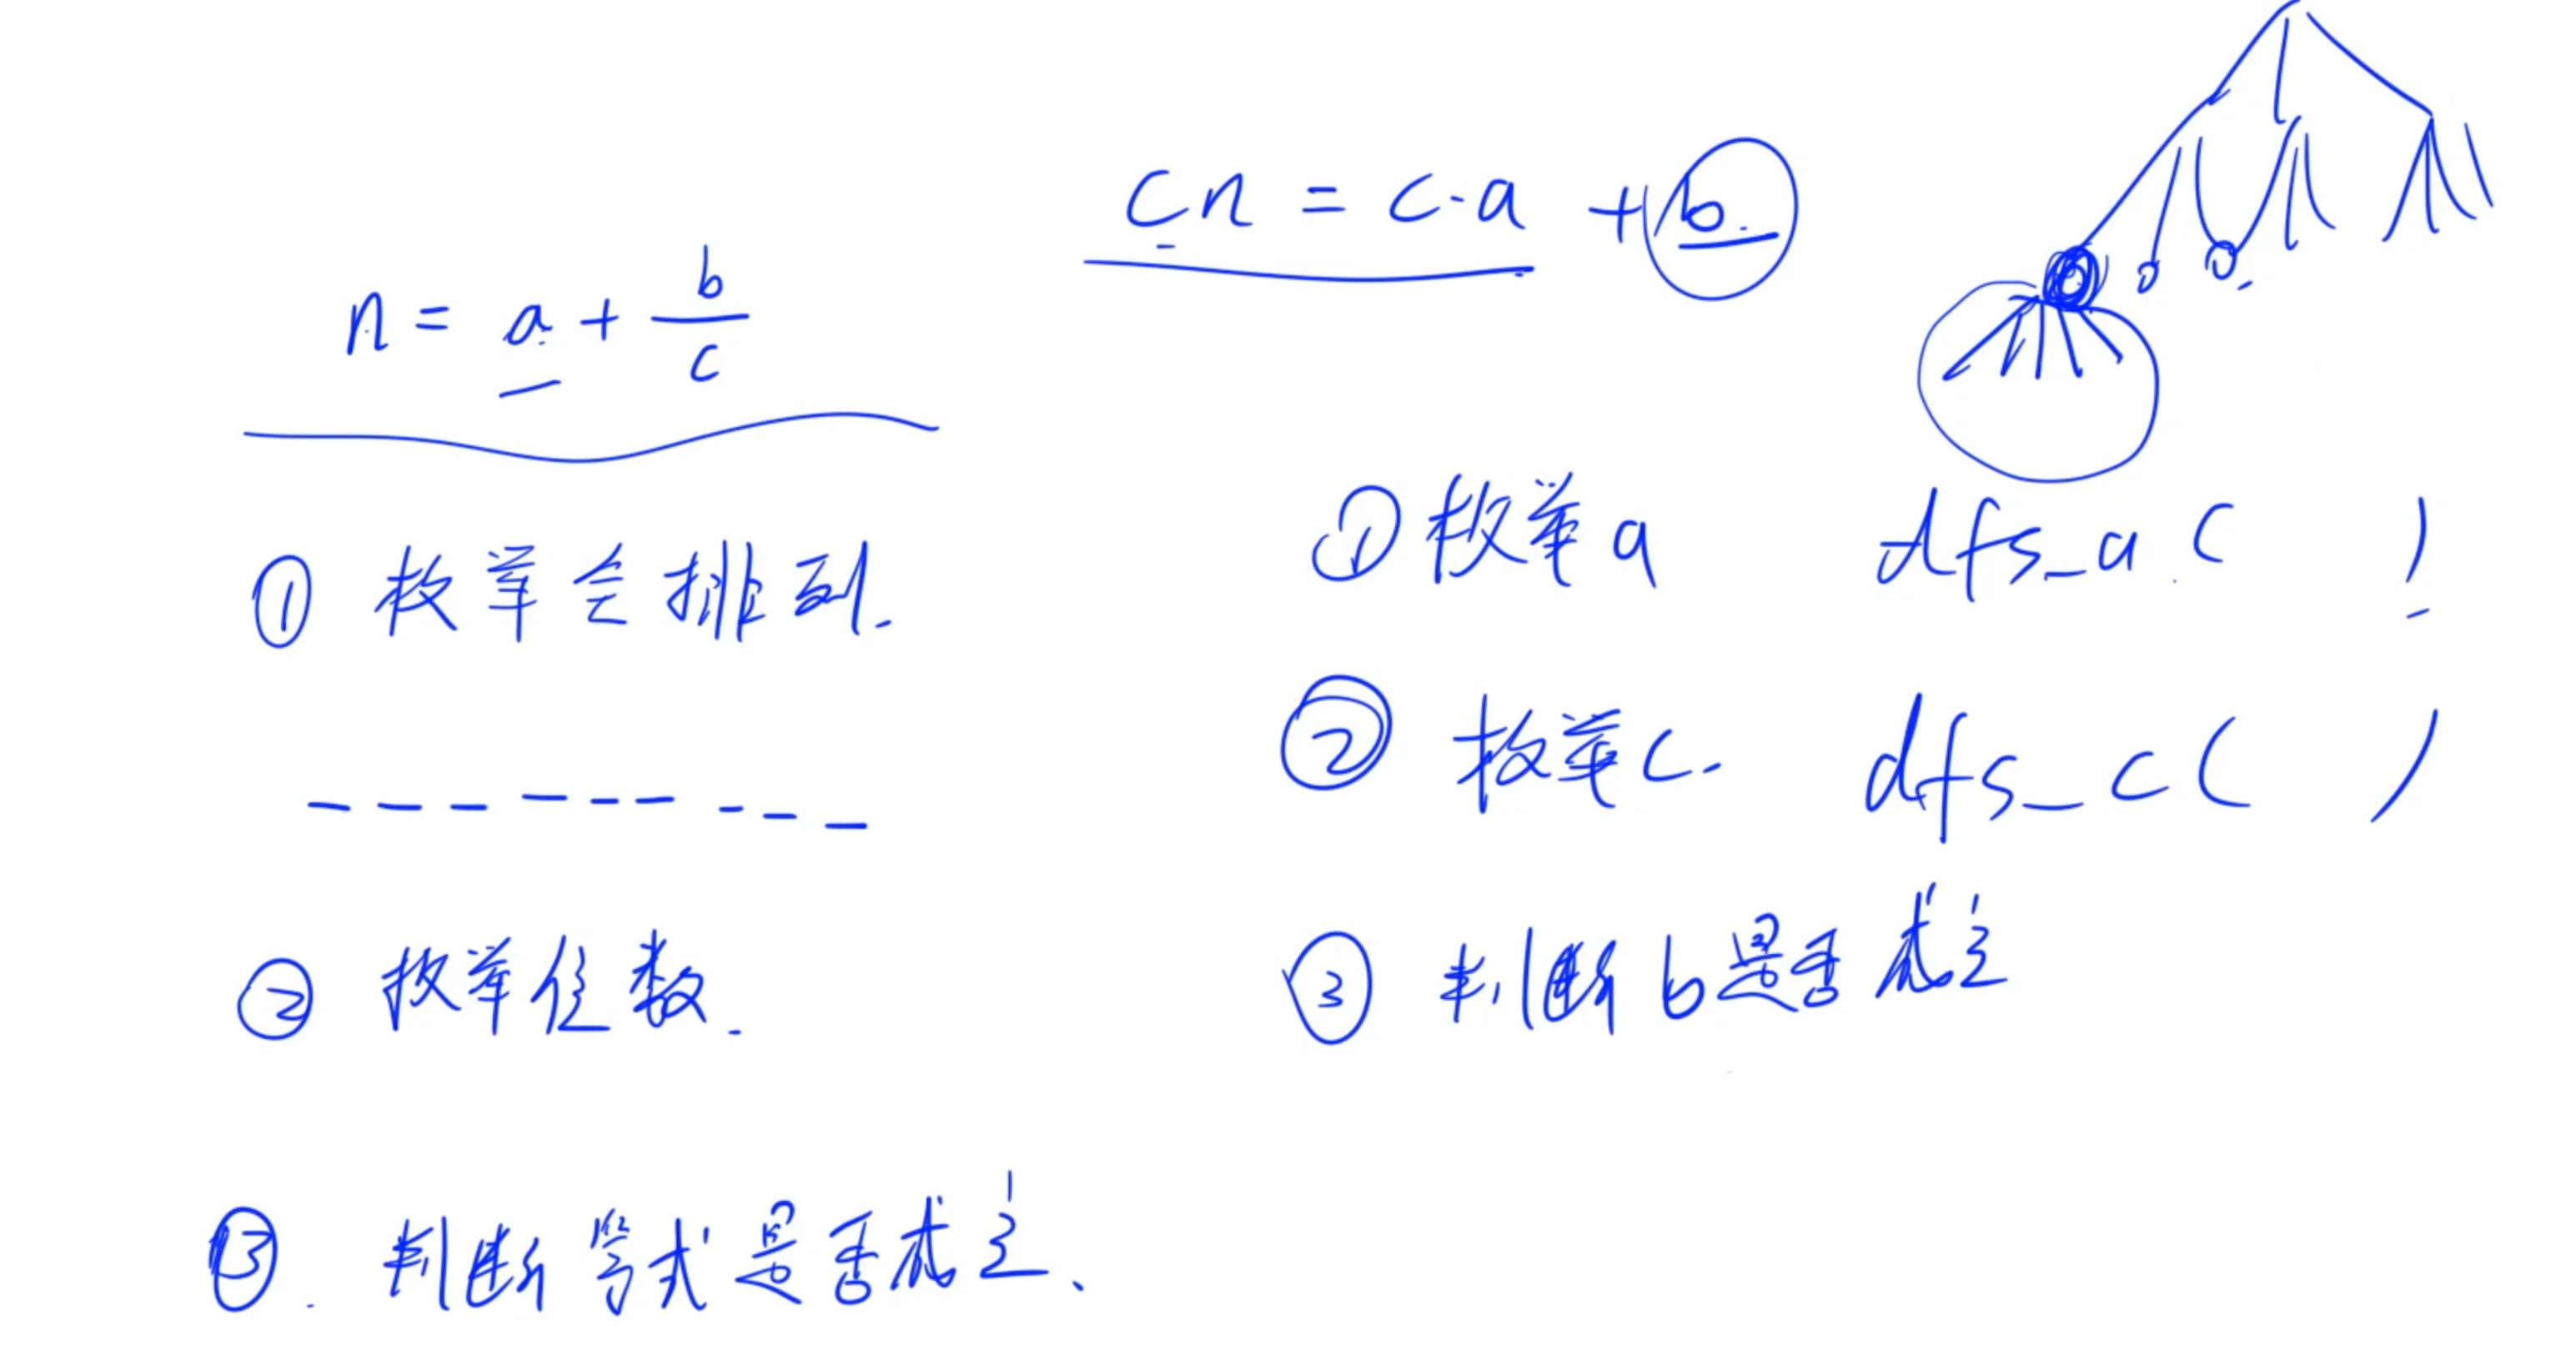 n = a + b/c
① 枚举全排列.
② 枚举位数.
③. 判断等式是否成立、
cn = c·a + b
① 枚举a dfs_a( )
② 枚举c. dfs_c( )
③ 判断b是否成立